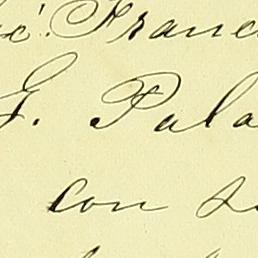 Franc
G. Pala
con s